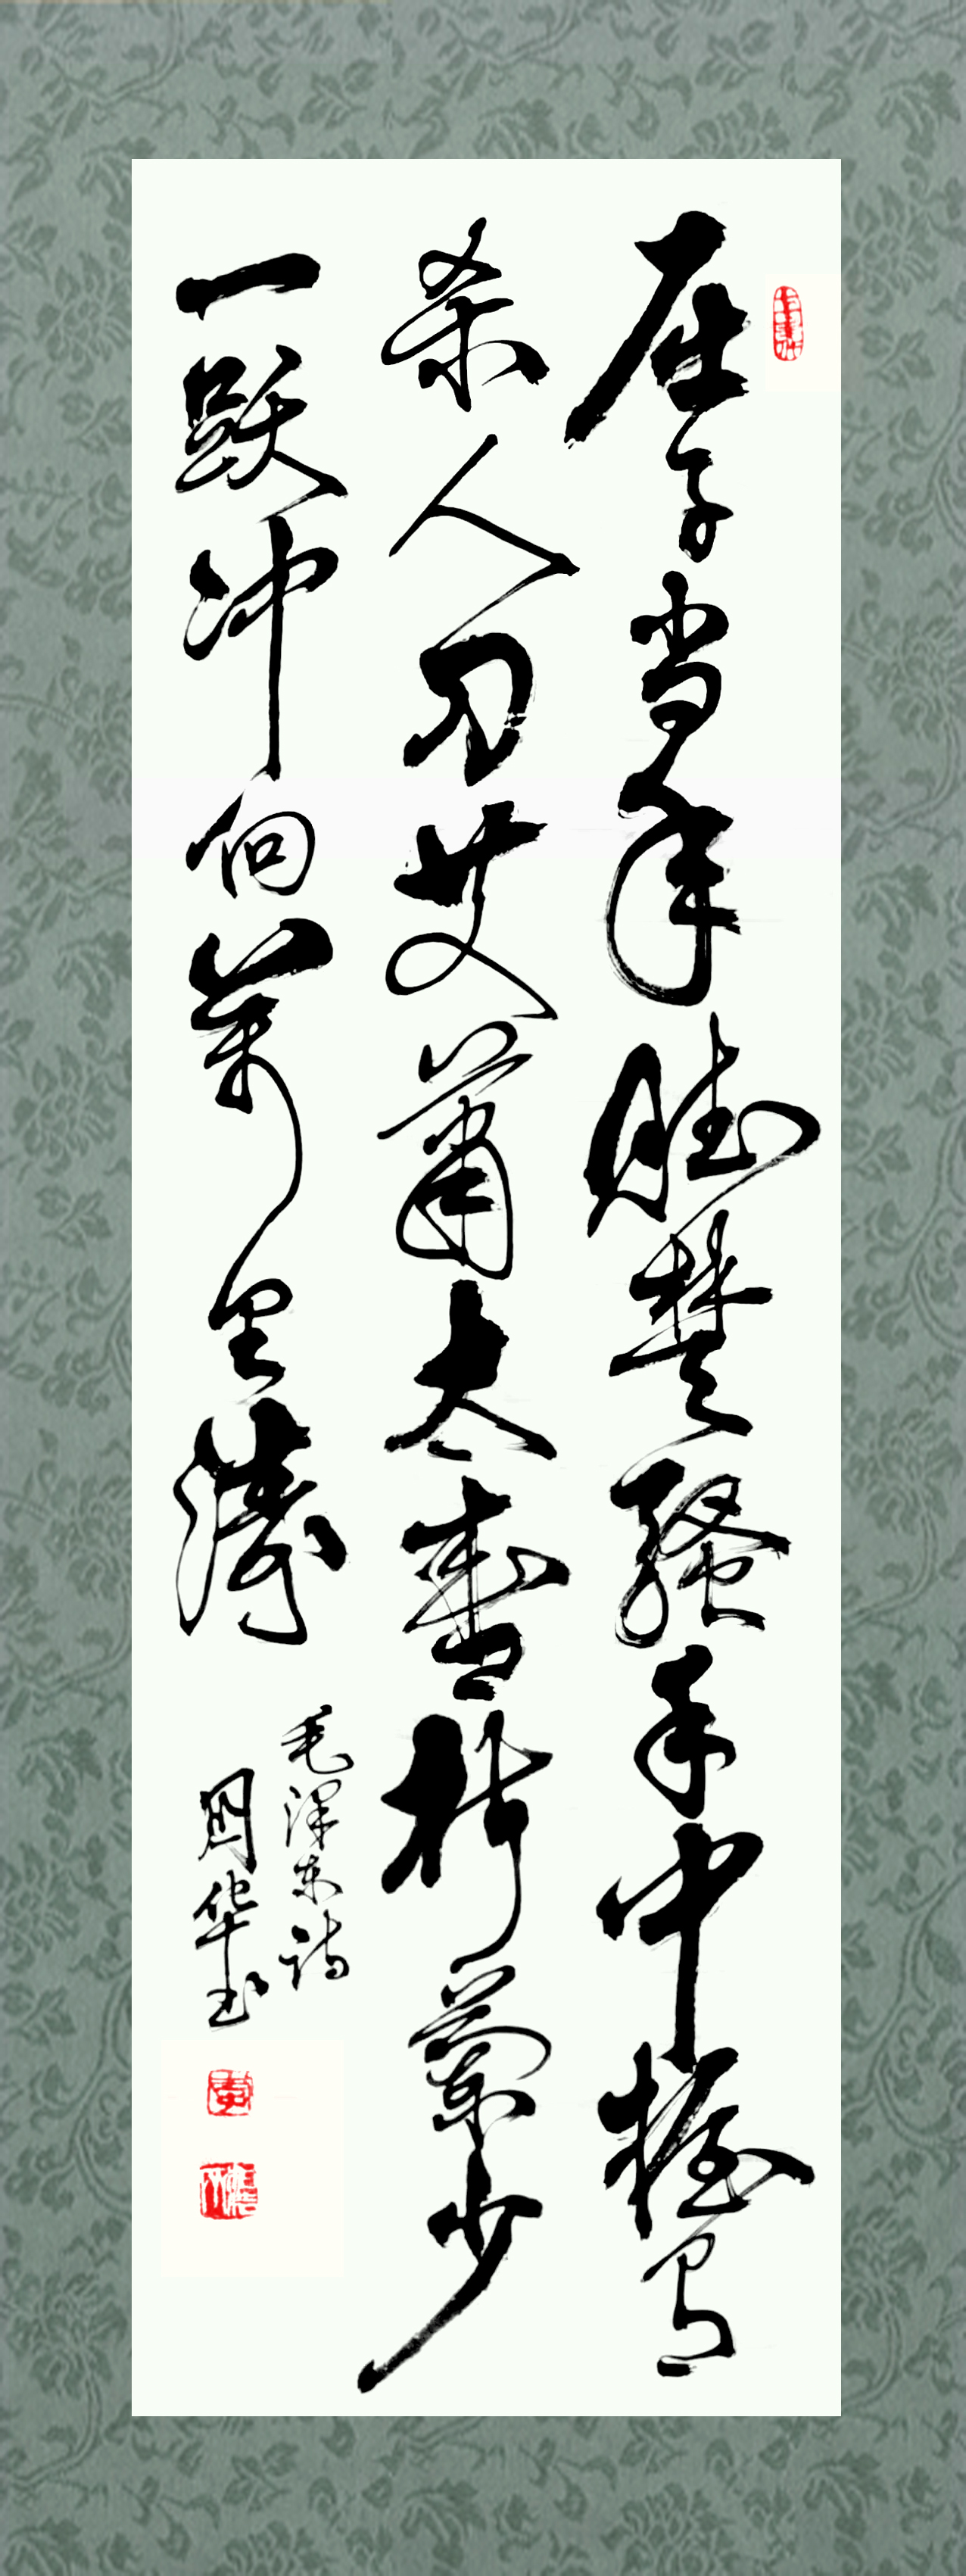 屈子当年赋楚骚手中握有
杀人刀艾萧太盛椒蘭少
一跃冲向萬里涛
毛泽东诗
国华书